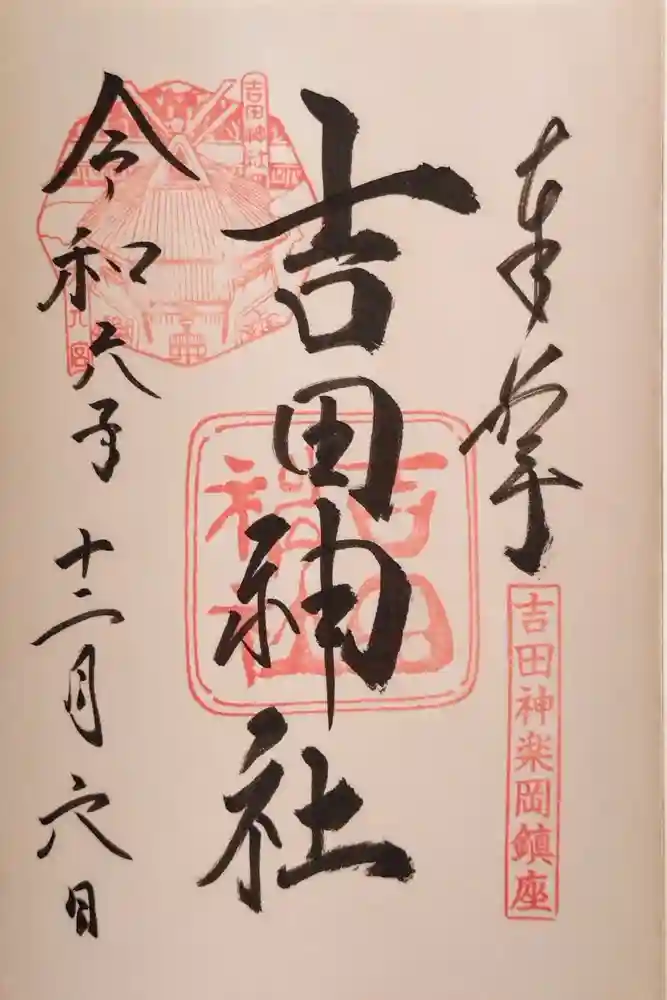 奉拝
吉田神楽岡鎮座
吉田神社
吉田
神社
令和六年 十二月六日
吉田神社